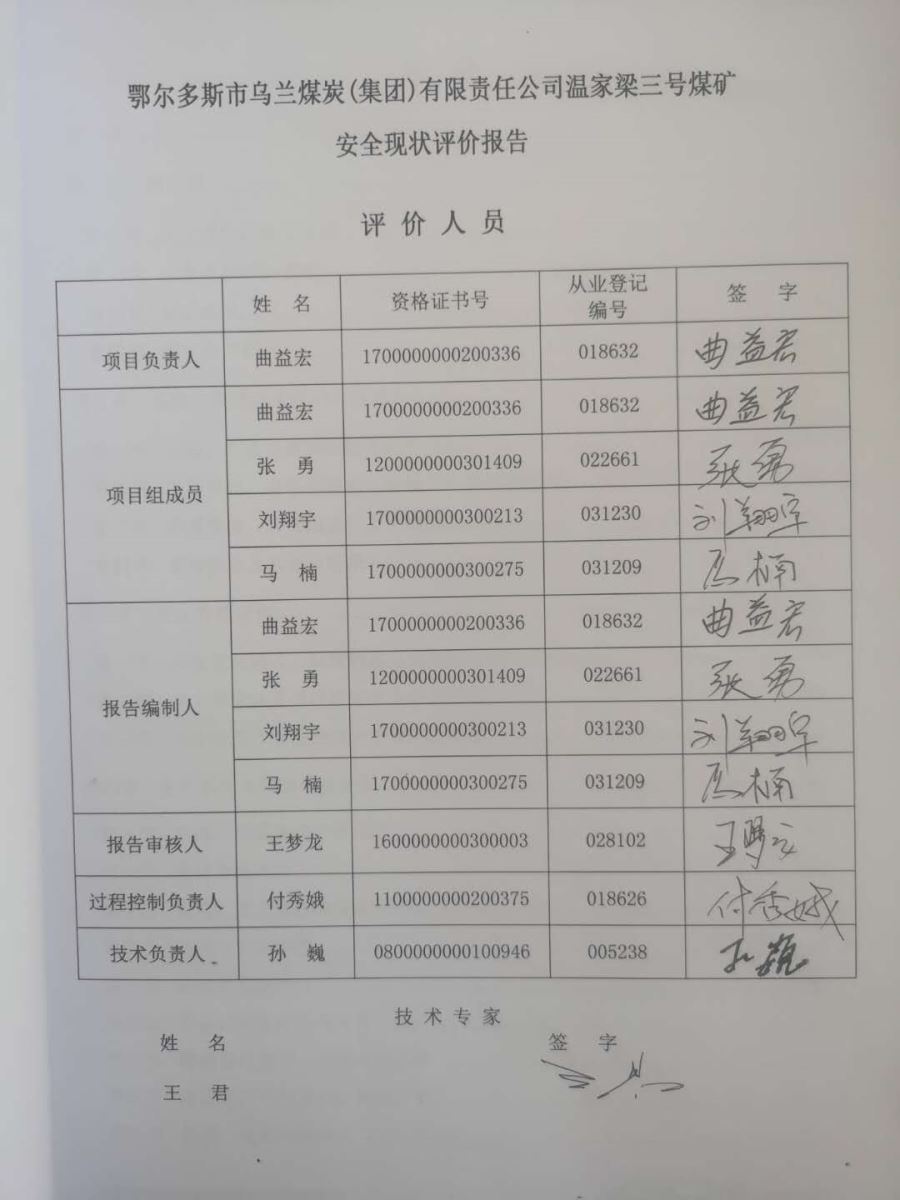 鄂尔多斯市乌兰煤炭(集团)有限责任公司温家梁三号煤矿
安全现状评价报告
评价人员
姓 名 资格证书号 从业登记编号 签 字
项目负责人 曲益宏 1700000000200336 018632 曲益宏
项目组成员 曲益宏 1700000000200336 018632 曲益宏
张 勇 1200000000301409 022661 张勇
刘翔宇 1700000000300213 031230 刘翔宇
马 楠 1700000000300275 031209 马楠
报告编制人 曲益宏 1700000000200336 018632 曲益宏
张 勇 1200000000301409 022661 张勇
刘翔宇 1700000000300213 031230 刘翔宇
马 楠 1700000000300275 031209 马楠
报告审核人 王梦龙 1600000000300003 028102 王梦龙
过程控制负责人 付秀娥 1100000000200375 018626 付秀娥
技术负责人 孙 巍 0800000000100946 005238 孙巍
技术专家
姓 名 签 字
王 君 王君